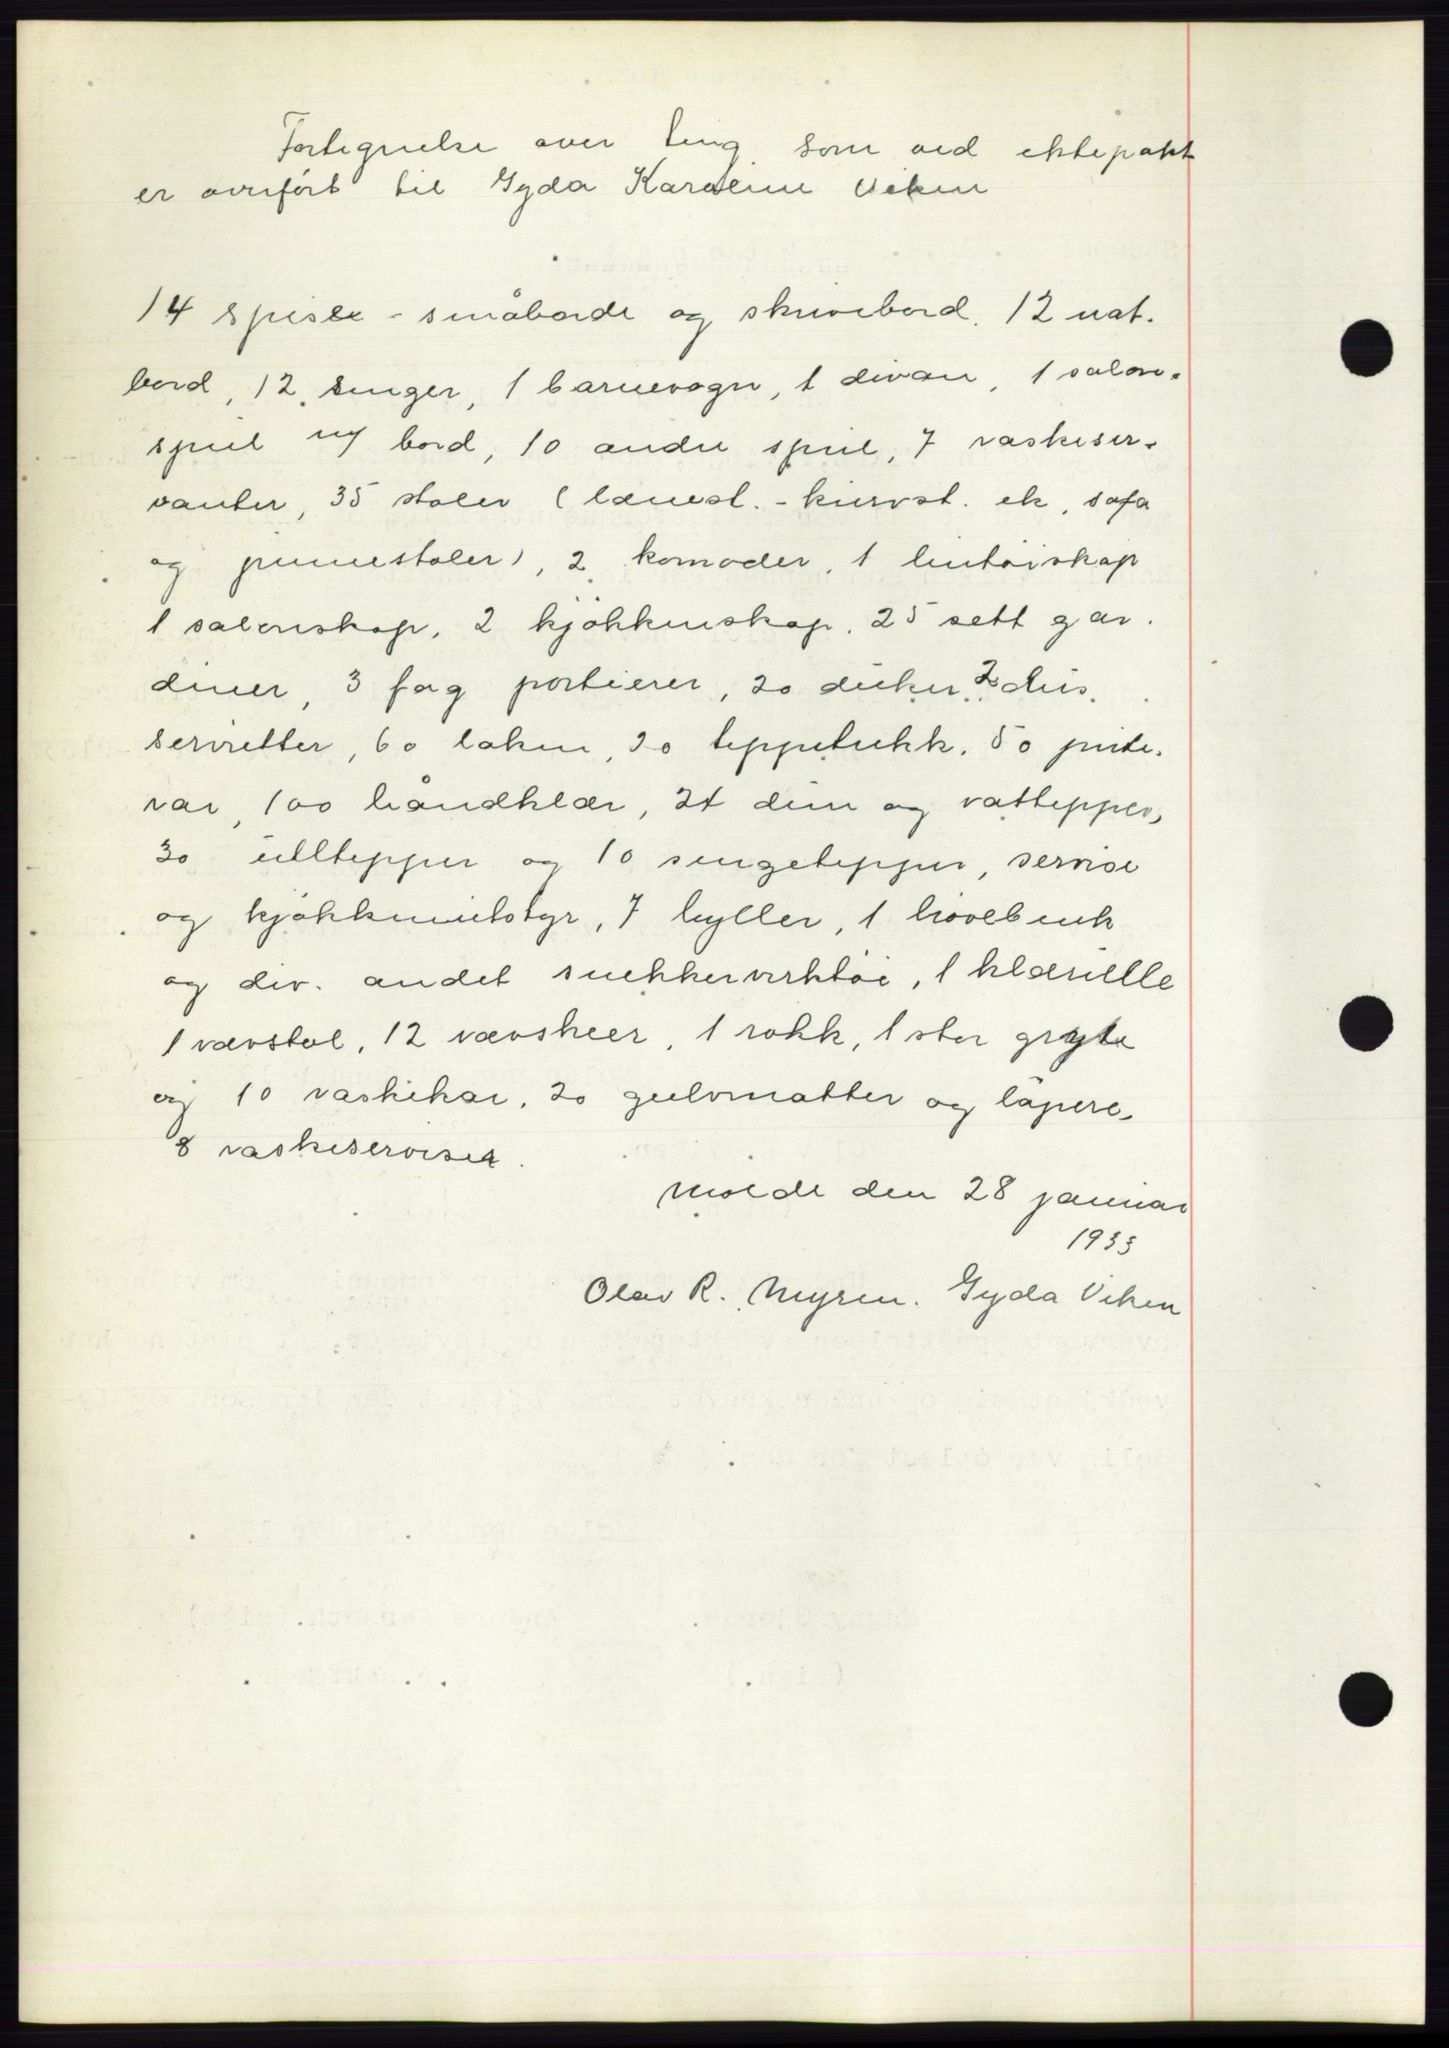 Fortegnelse over ting som ved ektepakt
er overført til Gyda Karoline Viken
14 spise - småborde og skrivebord. 12 nat.
bord, 12 senger, 1 barnevogn, 1 divan, 1 salon.
speil m/ bord, 10 andre speil, 7 vaskeser-
vanter, 35 stoler (lænest. - kurvst. ek, sofa
og pinnestoler), 2 komoder, 1 lintøiskap
1 salonskap, 2 kjøkkenskap. 25 sett gar.
diner, 3 fag portierer, 20 duker, 2 dus.
servietter, 60 laken, 20 teppetrekk. 50 pute.
var, 100 håndklær, 24 dun og vattepper,
30 ulltepper og 10 sengetepper, servise
og kjøkkenutstyr, 7 hyller, 1 høvelbenk
og div. andet snekkerverktøi, 1 klærulle
1 vævstol, 12 vævskeer, 1 rokk, 1 stor gryte
og 10 vaskekar. 20 gulvmatter og løpere.
8 vaskeserviser.
Molde den 28 januar
1935
Olav R. Myren. Gyda Viken